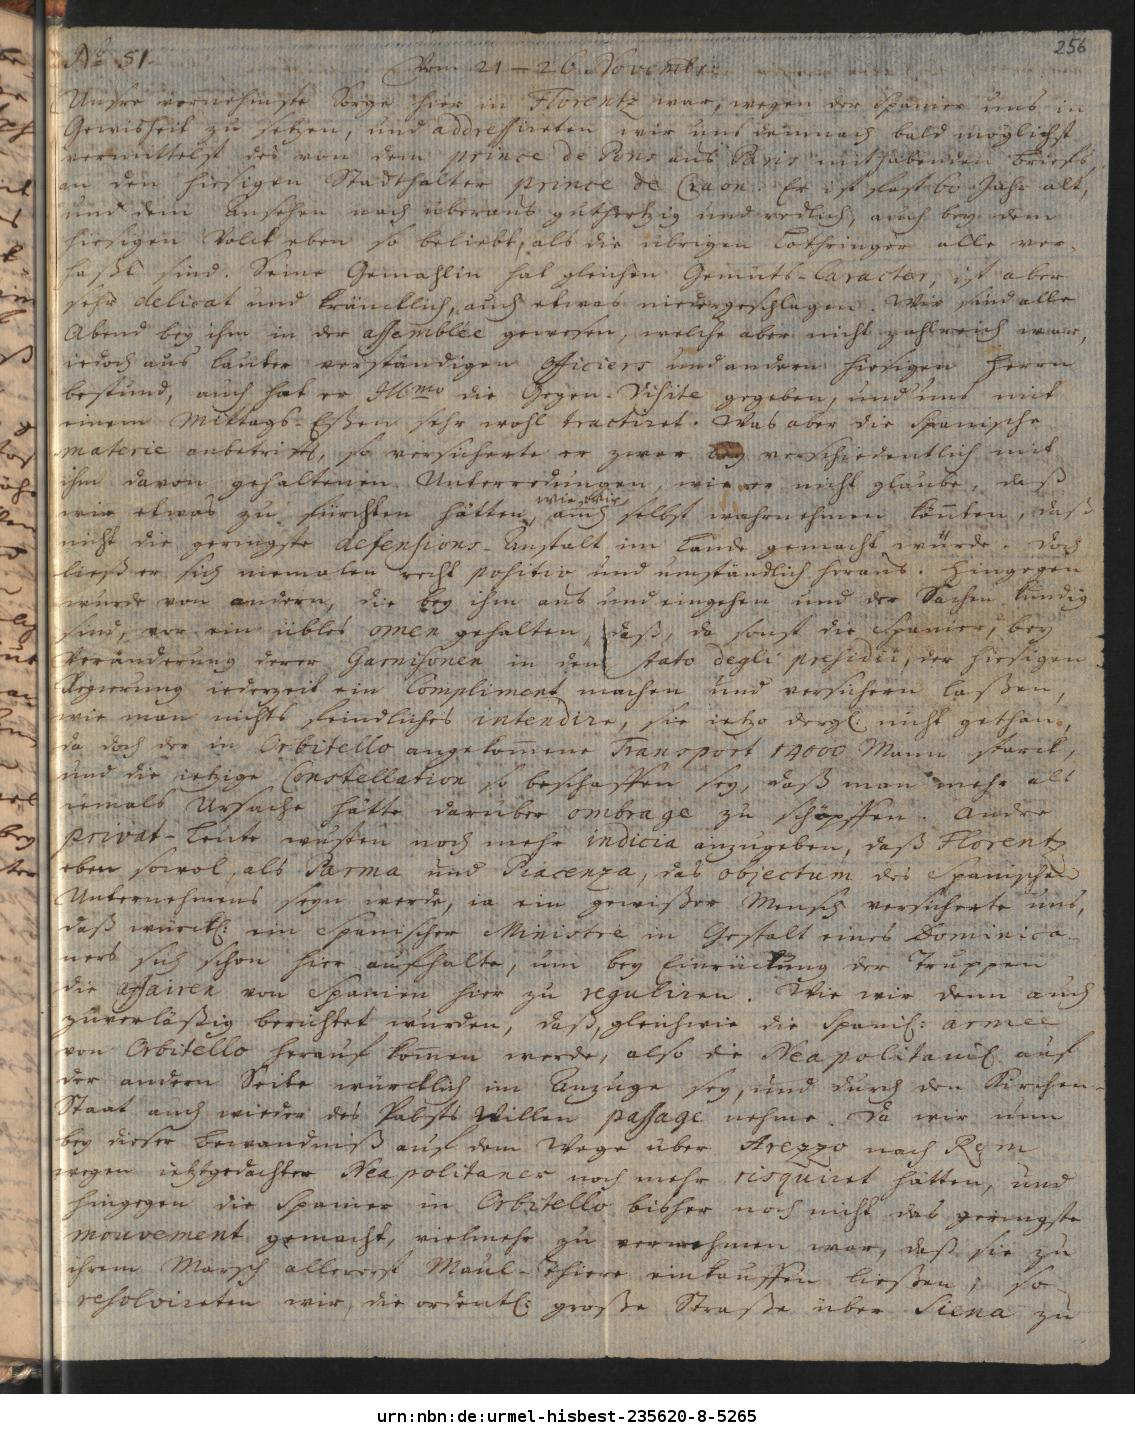 256
No 51.
Vom 21–26. Novembr:
Unsre vornehmste Sorge hier in Florentz war, wegen der Spanier uns in
Gewisheit zu setzen, und addressireten wir uns demnach bald möglichst
vermittelst des von dem prince de Pons aus Paris mithabenden Briefs,
an den hiesigen Stadthalter prince de Craon. Er ist fast 60 Jahr alt,
und dem Ansehen nach überaus guthertzig und redlich, auch bey dem
hiesigen Volck eben so beliebt, als die übrigen Lothringer alle ver-
haßt sind. Seine Gemahlin hat gleichen Gemüts-Caracter, ist aber
sehr delicat und kräncklich, auch etwas niedergeschlagen. Wir sind alle
Abend bey ihm in der assemblée gewesen, welche aber nicht zahlreich war,
iedoch aus lauter verständigen Officiers und andern hiesigen Herrn
bestund, auch hat er Illmo die Gegen-Visite gegeben, und uns mit
einem Mittags-Eßen sehr wohl tractiret. Was aber die Spanische
materie anbetrifft, so versicherte er zwar bey verschiedentlich mit
ihm davon gehaltenen Unterredungen, wie er nicht glaube, daß
wir etwas zu fürchten hätten, wie wir auch selbst wahrnehmen könten, daß
nicht die geringste defensions-Anstalt im Lande gemacht würde. Doch
ließ er sich niemalen recht positiv und umständlich heraus. Hingegen
wurde von andern, die bey ihm aus und eingehen und der Sachen kundig
sind, vor ein übles omen gehalten, daß, da sonst die Spanier, bey
Veränderung derer Garnisonen in dem stato degli presidii, der hiesigen
Regierung iederzeit ein Compliment machen und versichern laßen,
wie man nichts feindliches intendire, sie ietzo dergl: nicht gethan,
da doch der in Orbitello angekomene Transport 14000 Mann starck,
und die ietzige Constellation so beschaffen sey, daß man mehr als
iemals Ursache hätte darüber ombrage zu schöpffen. Andre
privat-Leute wusten noch mehr indicia anzugeben, daß Florentz
eben sowol, als Parma und Piacenza, das objectum des Spanischen
Unternehmens seyn werde, ia ein gewißer Mensch versicherte uns,
daß würckl: ein Spanischer Ministre in Gestalt eines Dominica-
ners sich schon hier aufhalte, um bey Einrückung der Truppen
die affairen von Spanien hier zu reguliren. Wie wir denn auch
zuverläßig berichtet wurden, daß, gleichwie die Spanis: armee
von Orbitello herauf komen werde, also die Neapolitanis: auf
der andern Seite würcklich im Anzuge sey, und durch den Kirchen-
Staat auch wieder des Pabsts Willen passage nehme. Da wir nun
bey dieser Bewandniß auf dem Wege über Arezzo nach Rom
wegen ietztgedachter Neapolitaner noch mehr risquiret hätten, und
hingegen die Spanier in Orbitello bisher noch nicht das geringste
mouvement gemacht, vielmehr zu vernehmen war, daß sie zu
ihrem Marsch allererst Maul-Thiere einkauffen ließen; so
resolvireten wir, die ordentl: große Straße über Siena zu
urn:nbn:de:urmel-hisbest-235620-8-5265